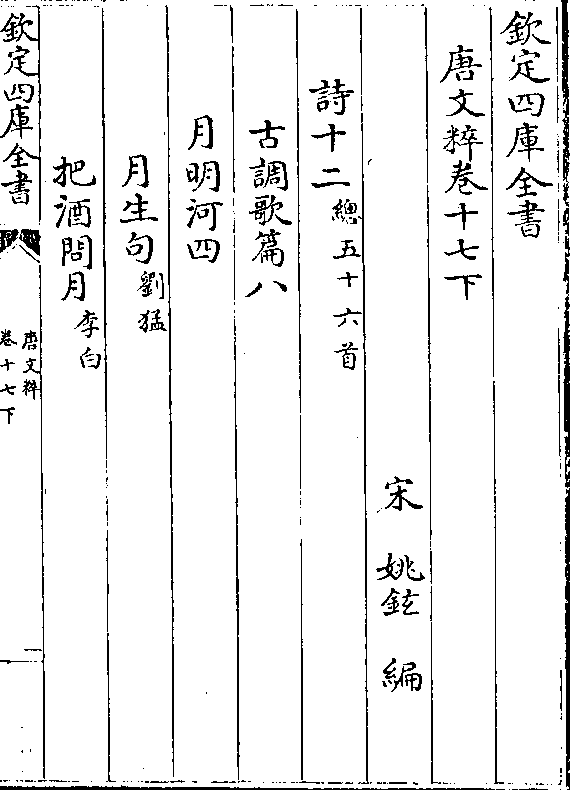 欽定四庫全書
唐文粹卷十七下
宋 姚鉉 編
詩十二 總五十六首
古調歌篇八
月明河四
月生句 劉猛
把酒問月 李白
欽定四庫全書
唐文粹
卷十七下
一